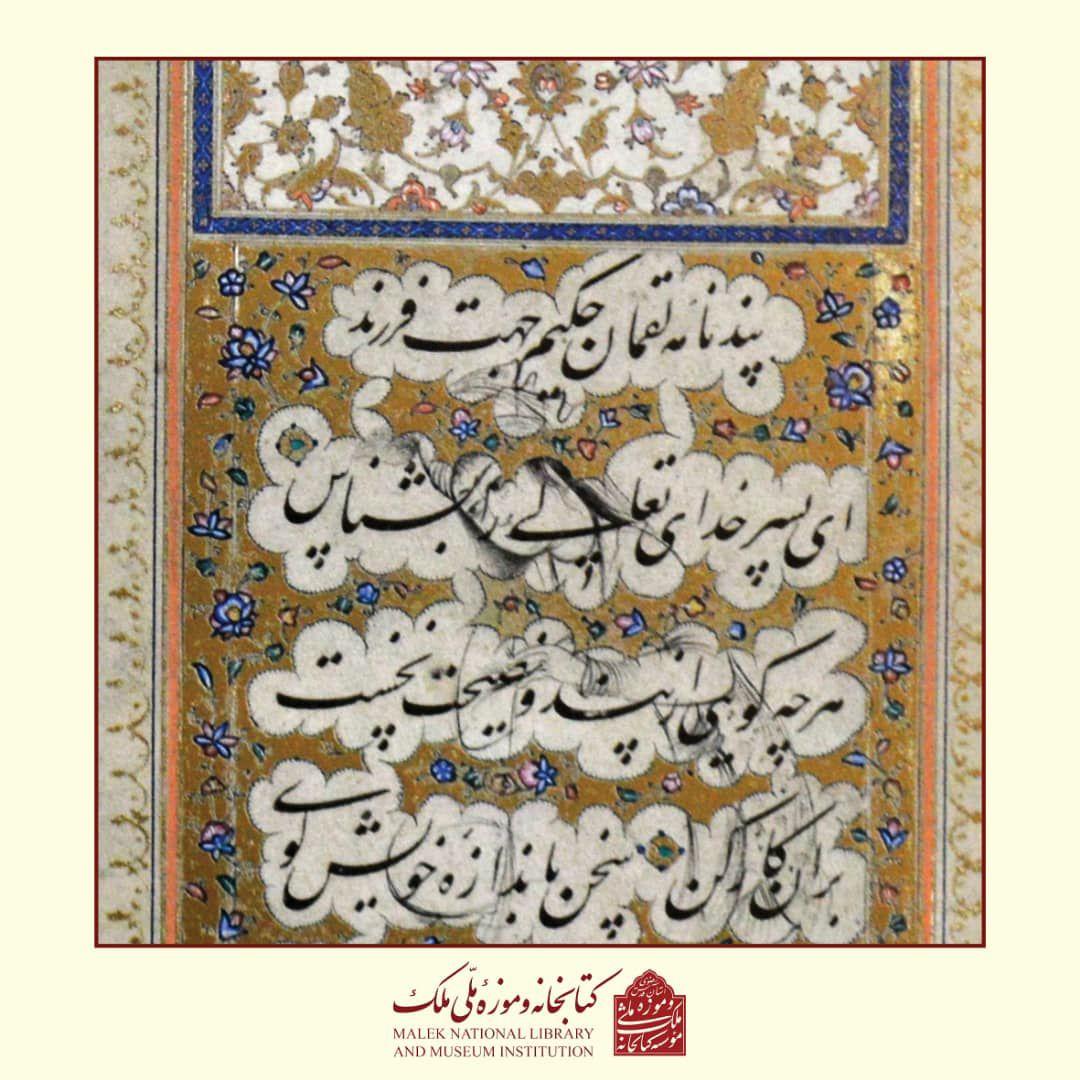 پند نامه لقمان حکیم جهت فرزند
ای پسر خدای تعالی را بشناس
هر چه گویی از پند و نصیحت نخست
بران کار کن سخن باندازه خویش گوی
کتابخانه و موزهٔ ملّی ملک
MALEK NATIONAL LIBRARY
AND MUSEUM INSTITUTION
آستان قدس رضوی
موسسه کتابخانه و موزه ملی ملک